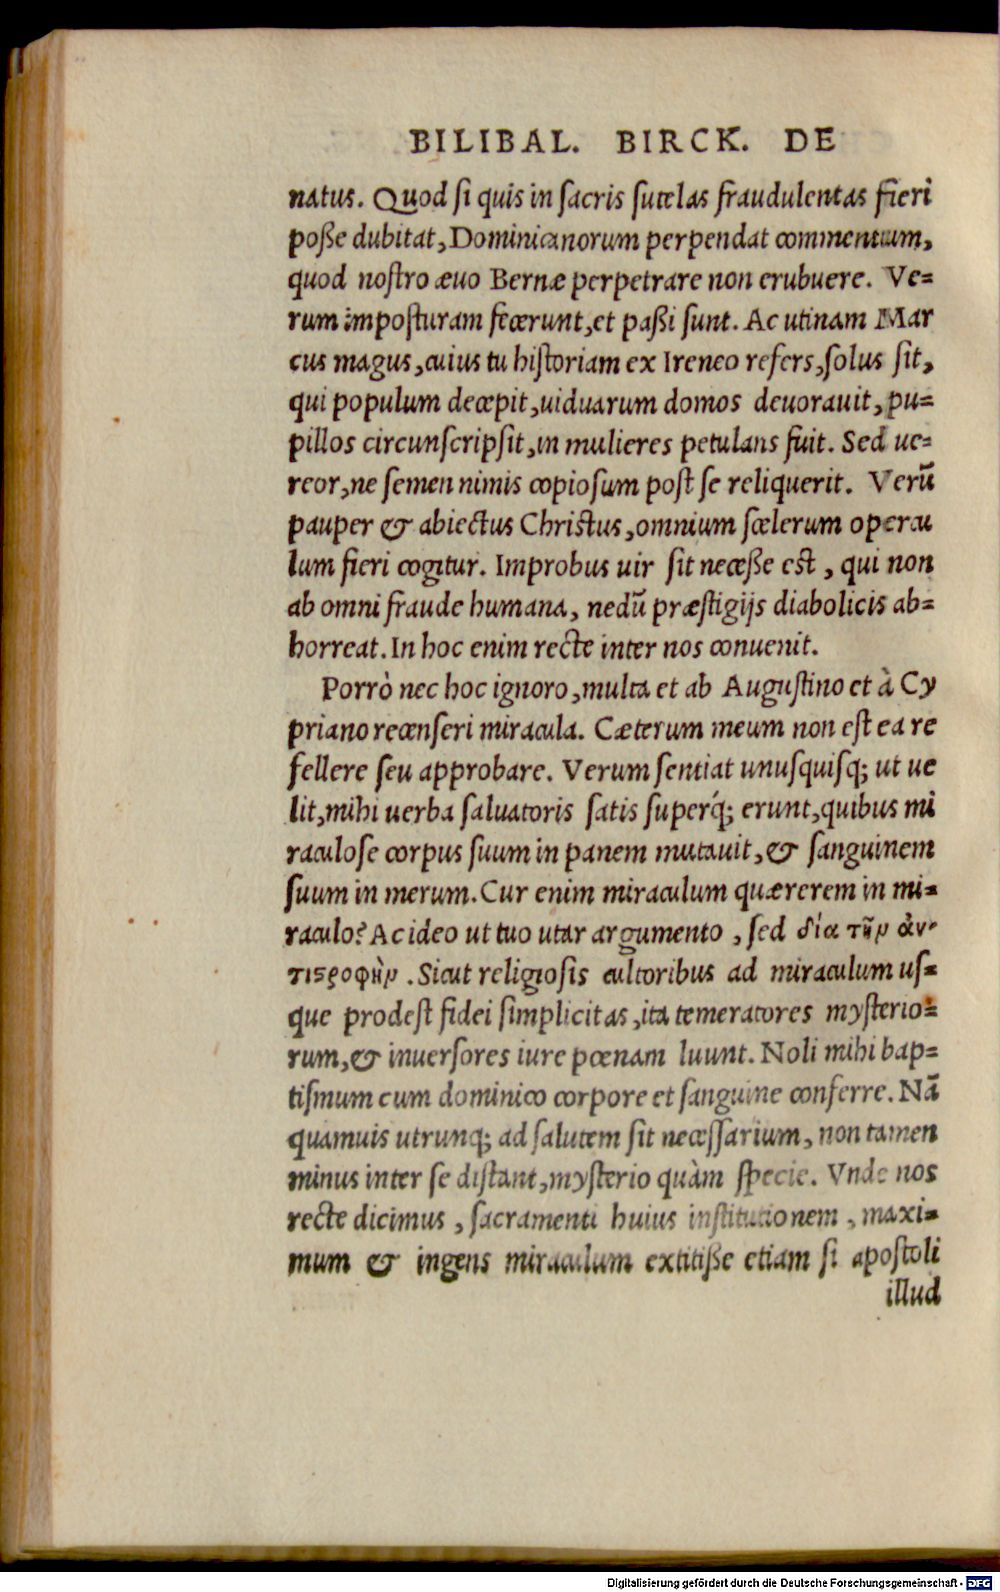 BILIBAL. BIRCK. DE
natus. Quod ſi quis in ſacris ſutelas fraudulentas fieri
poße dubitat, Dominicanorum perpendat commentum,
quod noſtro æuo Bernæ perpetrare non erubuere. Ve-
rum impoſturam fecerunt, et paßi ſunt. Ac utinam Mar
cus magus, cuius tu hiſtoriam ex Ireneo refers, ſolus ſit,
qui populum decepit, uiduarum domos deuorauit, pu-
pillos circunſcripſit, in mulieres petulans fuit. Sed ue-
reor, ne ſemen nimis copioſum poſt ſe reliquerit. Verũ
pauper & abiectus Chriſtus, omnium ſcelerum opercu
lum fieri cogitur. Improbus uir ſit neceße eſt, qui non
ab omni fraude humana, nedũ præſtigijs diabolicis ab-
horreat. In hoc enim recte inter nos conuenit.
Porrò nec hoc ignoro, multa et ab Auguſtino et à Cy
priano recenſeri miracula. Cæterum meum non eſt ea re
fellere ſeu approbare. Verum ſentiat unuſquiſq; ut ue
lit, mihi uerba ſaluatoris ſatis ſuperq́; erunt, quibus mi
raculoſe corpus ſuum in panem mutauit, & ſanguinem
ſuum in merum. Cur enim miraculum quærerem in mi-
raculo? Ac ideo ut tuo utar argumento, ſed δία τῆν ἀν-
τιϛροφὴν. Sicut religioſis cultoribus ad miraculum uſ-
que prodeſt fidei ſimplicitas, ita temeratores myſterio-
rum, & inuerſores iure pœnam luunt. Noli mihi bap-
tiſmum cum dominico corpore et ſanguine conferre. Nã
quamuis utrunq; ad ſalutem ſit neceſſarium, non tamen
minus inter ſe diſtant, myſterio quàm ſpecie. Vnde nos
recte dicimus, ſacramenti huius inſtitutionem, maxi-
mum & ingens miraculum extitiße etiam ſi apoſtoli
illud
Digitalisierung gefördert durch die Deutsche Forschungsgemeinschaft - DFG